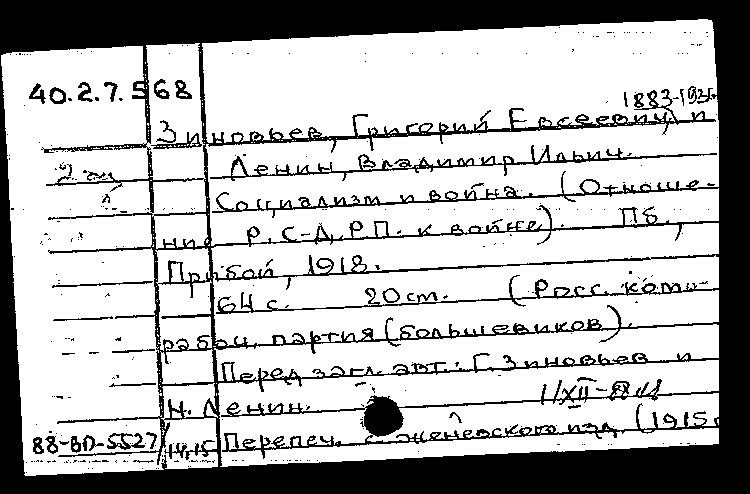 40.2.7.568
1883-193
Зиновьев, Григорий Евсеевич и
2 эк
Ленин, Владимир Ильич.
Социализм и война. (Отноше-
ние Р.С-Д.Р.П. к войне). Пб.,
Прибой, 1918.
64 с. 20 cm. (Росс. комм-
рабоч. партия (большевиков).
Перед загл. авт.: Г. Зиновьев и
Н. Ленин.
1/XII-88
88-BD-5527/14,15 Перепеч. с женевского изд. (1915